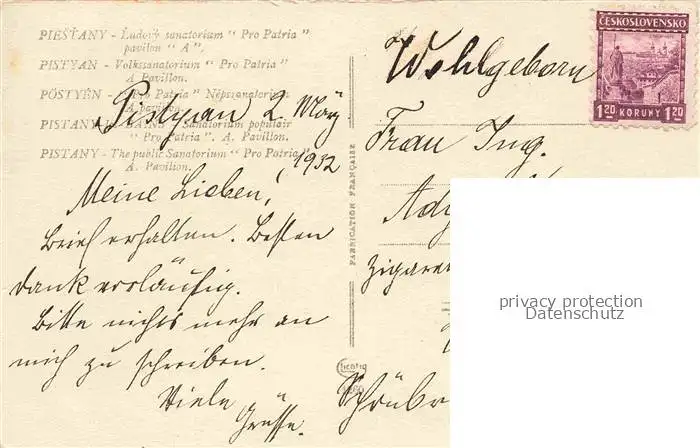 PIEŠŤANY - Ľudové sanatorium "Pro Patria"
pavilon "A".
PISTYAN - Volkssanatorium "Pro Patria"
A Pavillon.
PÖSTYÉN - "Pro Patria" Népszanatorium
A pavillon.
PISTANY-LES-BAINS - Sanatorium populair
"Pro Patria". A. Pavillon.
PISTANY - The public Sanatorium "Pro Patria"
A. Pavilion.
Pistyan 2. März
1932
Meine Lieben!
Brief erhalten. Besten
Dank vorläufig.
Bitte nichts mehr an
mich zu schreiben.
Viele
Grüsse.
FABRICATION FRANÇAISE
ČESKOSLOVENSKO
1.20 KORUNY 1.20
Wohlgeborn
Frau Ing.
privacy protection
Datenschutz